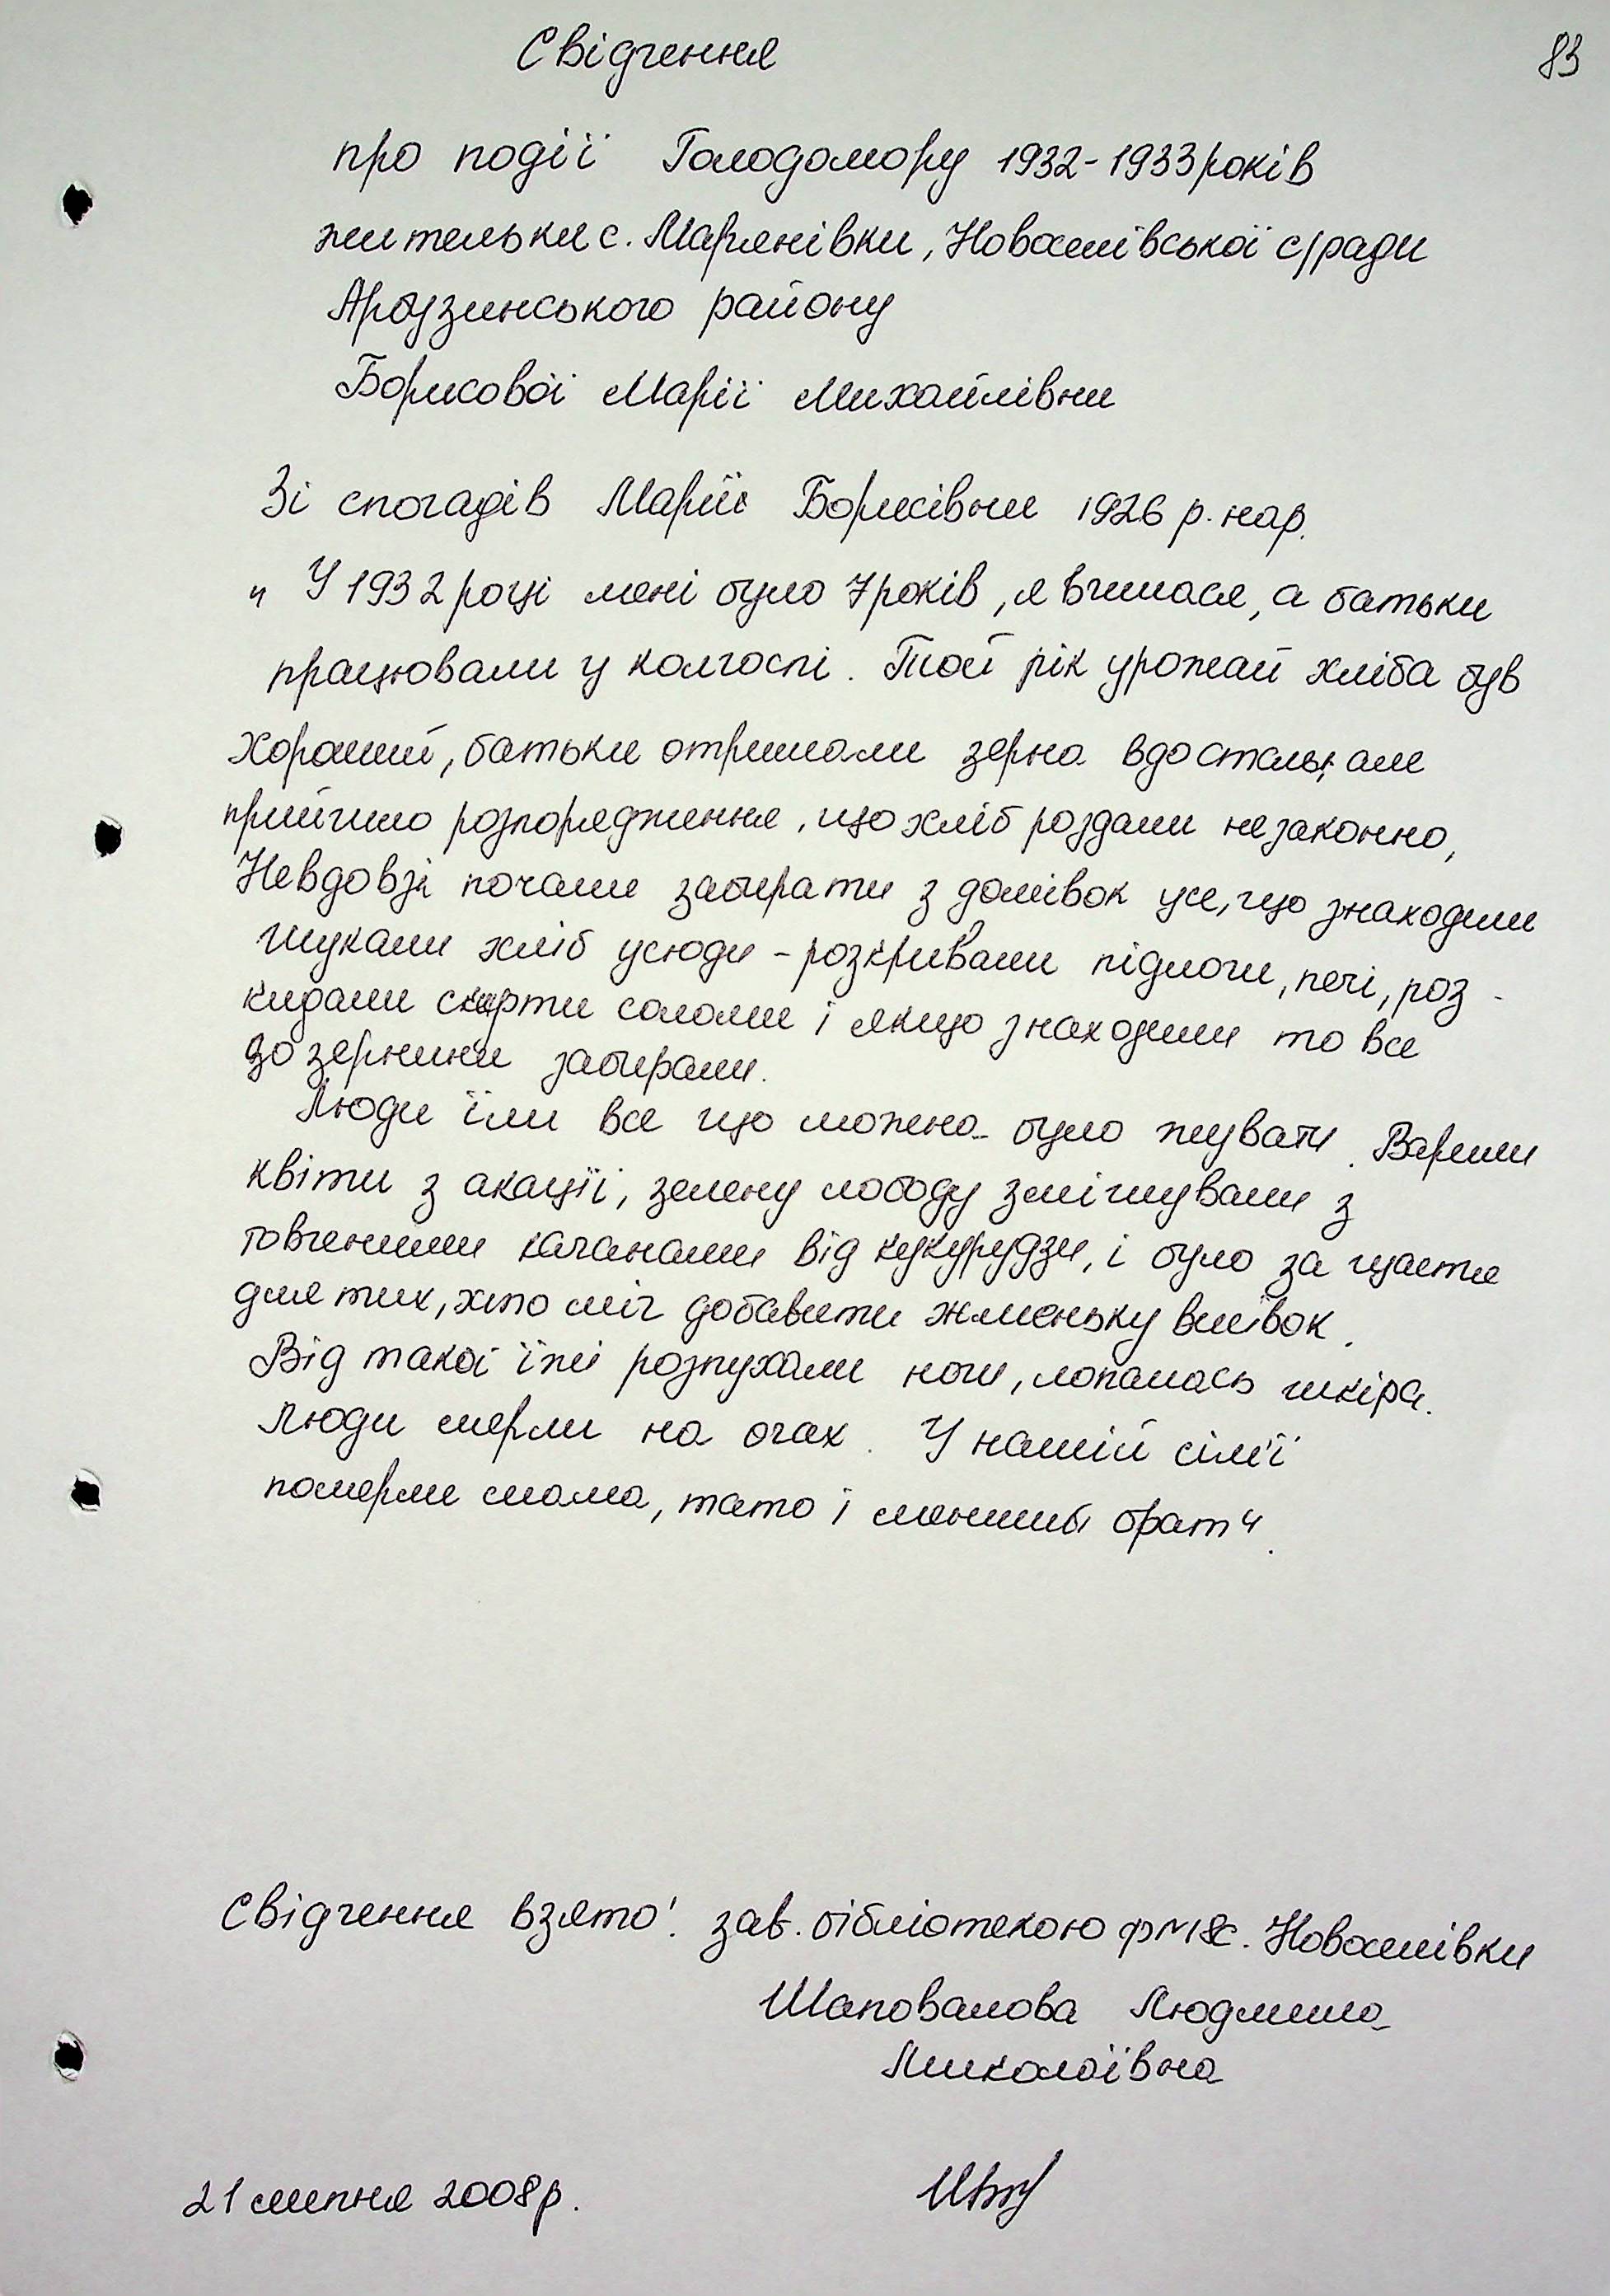 83
Свідчення
про події Голодомору 1932-1933 років
жительки с. Мар'янівки, Новоселівської с/ради
Арбузинського району
Борисової Марії Михайлівни
Зі спогадів Марії Борисівни 1926 р. нар.
„ У 1932 році мені було 7 років, я вчилася, а батьки
працювали у колгоспі. Той рік урожай хліба був
хороший, батьки отримали зерна вдосталь, але
прийшло розпорядження, що хліб роздали незаконно,
Невдовзі почали забирати з домівок усе, що знаходили
Шукали хліб усюди - розкривали підлоги, печі, роз-
кидали скирти соломи і якщо знаходили то все
до зернини забирали.
Люди їли все що можна було жувати. Варили
квіти з акації, зелену лободу змішували з
товченими качанами від кукурудзи, і було за щастя
для тих, хто міг добавити жменьку висівок.
Від такої їжі розпухали ноги, лопалась шкіра.
Люди мерли на очах. У нашій сім'ї
померли мама, тато і менший брат".
Свідчення взято: зав. бібліотекою ф№18 с. Новоселівки
Шаповалова Людмила
Миколаївна
21 липня 2008р.